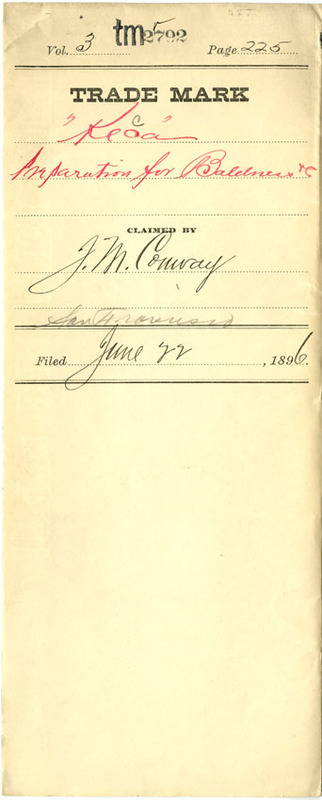 Vol. 3 tm 2792 Page 225
5
TRADE MARK
"Keca"
Preparation for Baldness &c
CLAIMED BY
J. M. Conway
San Francisco
Filed June 22, 1896.